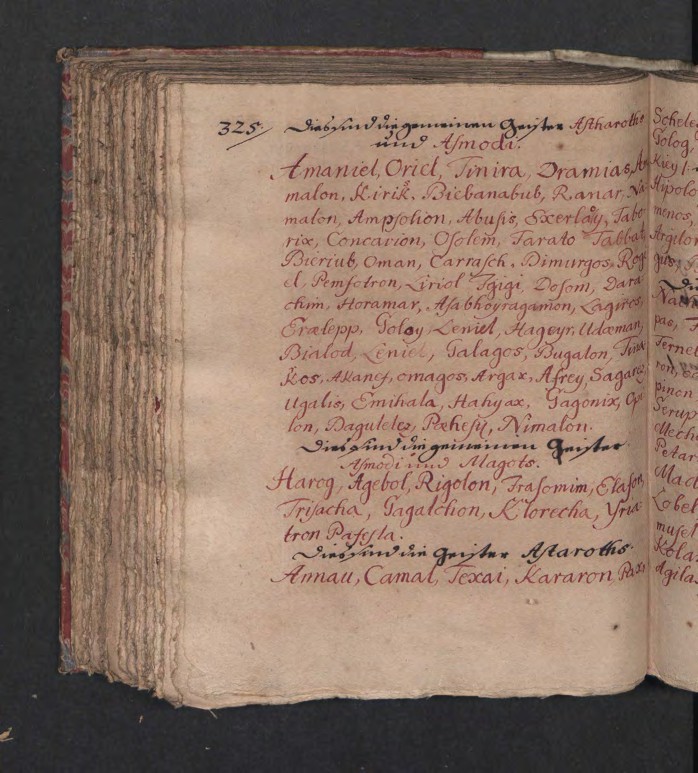 325.
Dies sind die gemeinen Geister Astharoths
und Asmodi.
Amaniel, Oriel, Tinira, Dramias, A
malon, Kirik, Biebanabub, Ranar, Na
maton, Ampsolion, Abusis, Tabo
rix, Concarion, Osolem, Tarato Tabbat,
Bieriub, Oman, Carrasch, Dimurgos, Rog
el, Pemfotron, Liriol Igigi, Dosom, Dara
chim, Horamar, Asabhoyragamon, Lagiros,
Eralepp, Goloy Leniel, Hageyr, Udaman,
Bialod, Leniel, Galagos, Bugalon, Tina
kos, Akanef, omagos, Argax, Afrey, Sagarez,
Ugalis, Emihala, Hahyax, Gagonix, Opi
lon, Daguletez, Pachesy, Nimalon.
Dies sind die gemeinen Geister
Asmodi und Magots.
Harog, Agebol, Rigolon, Frasomim, Elason,
Trisacha, Gagalchion, Klorecha, Yria
tron Pafesla.
Dies sind die Geister Astaroths.
Annau, Camal, Texai, Kararon, Rax
Schele
Golog,
Hipolo
menos,
Argilon
Di
pas,
Ternet
pinon
Serup
Mecha
Petar
Lobel
musel
Kola
Agila